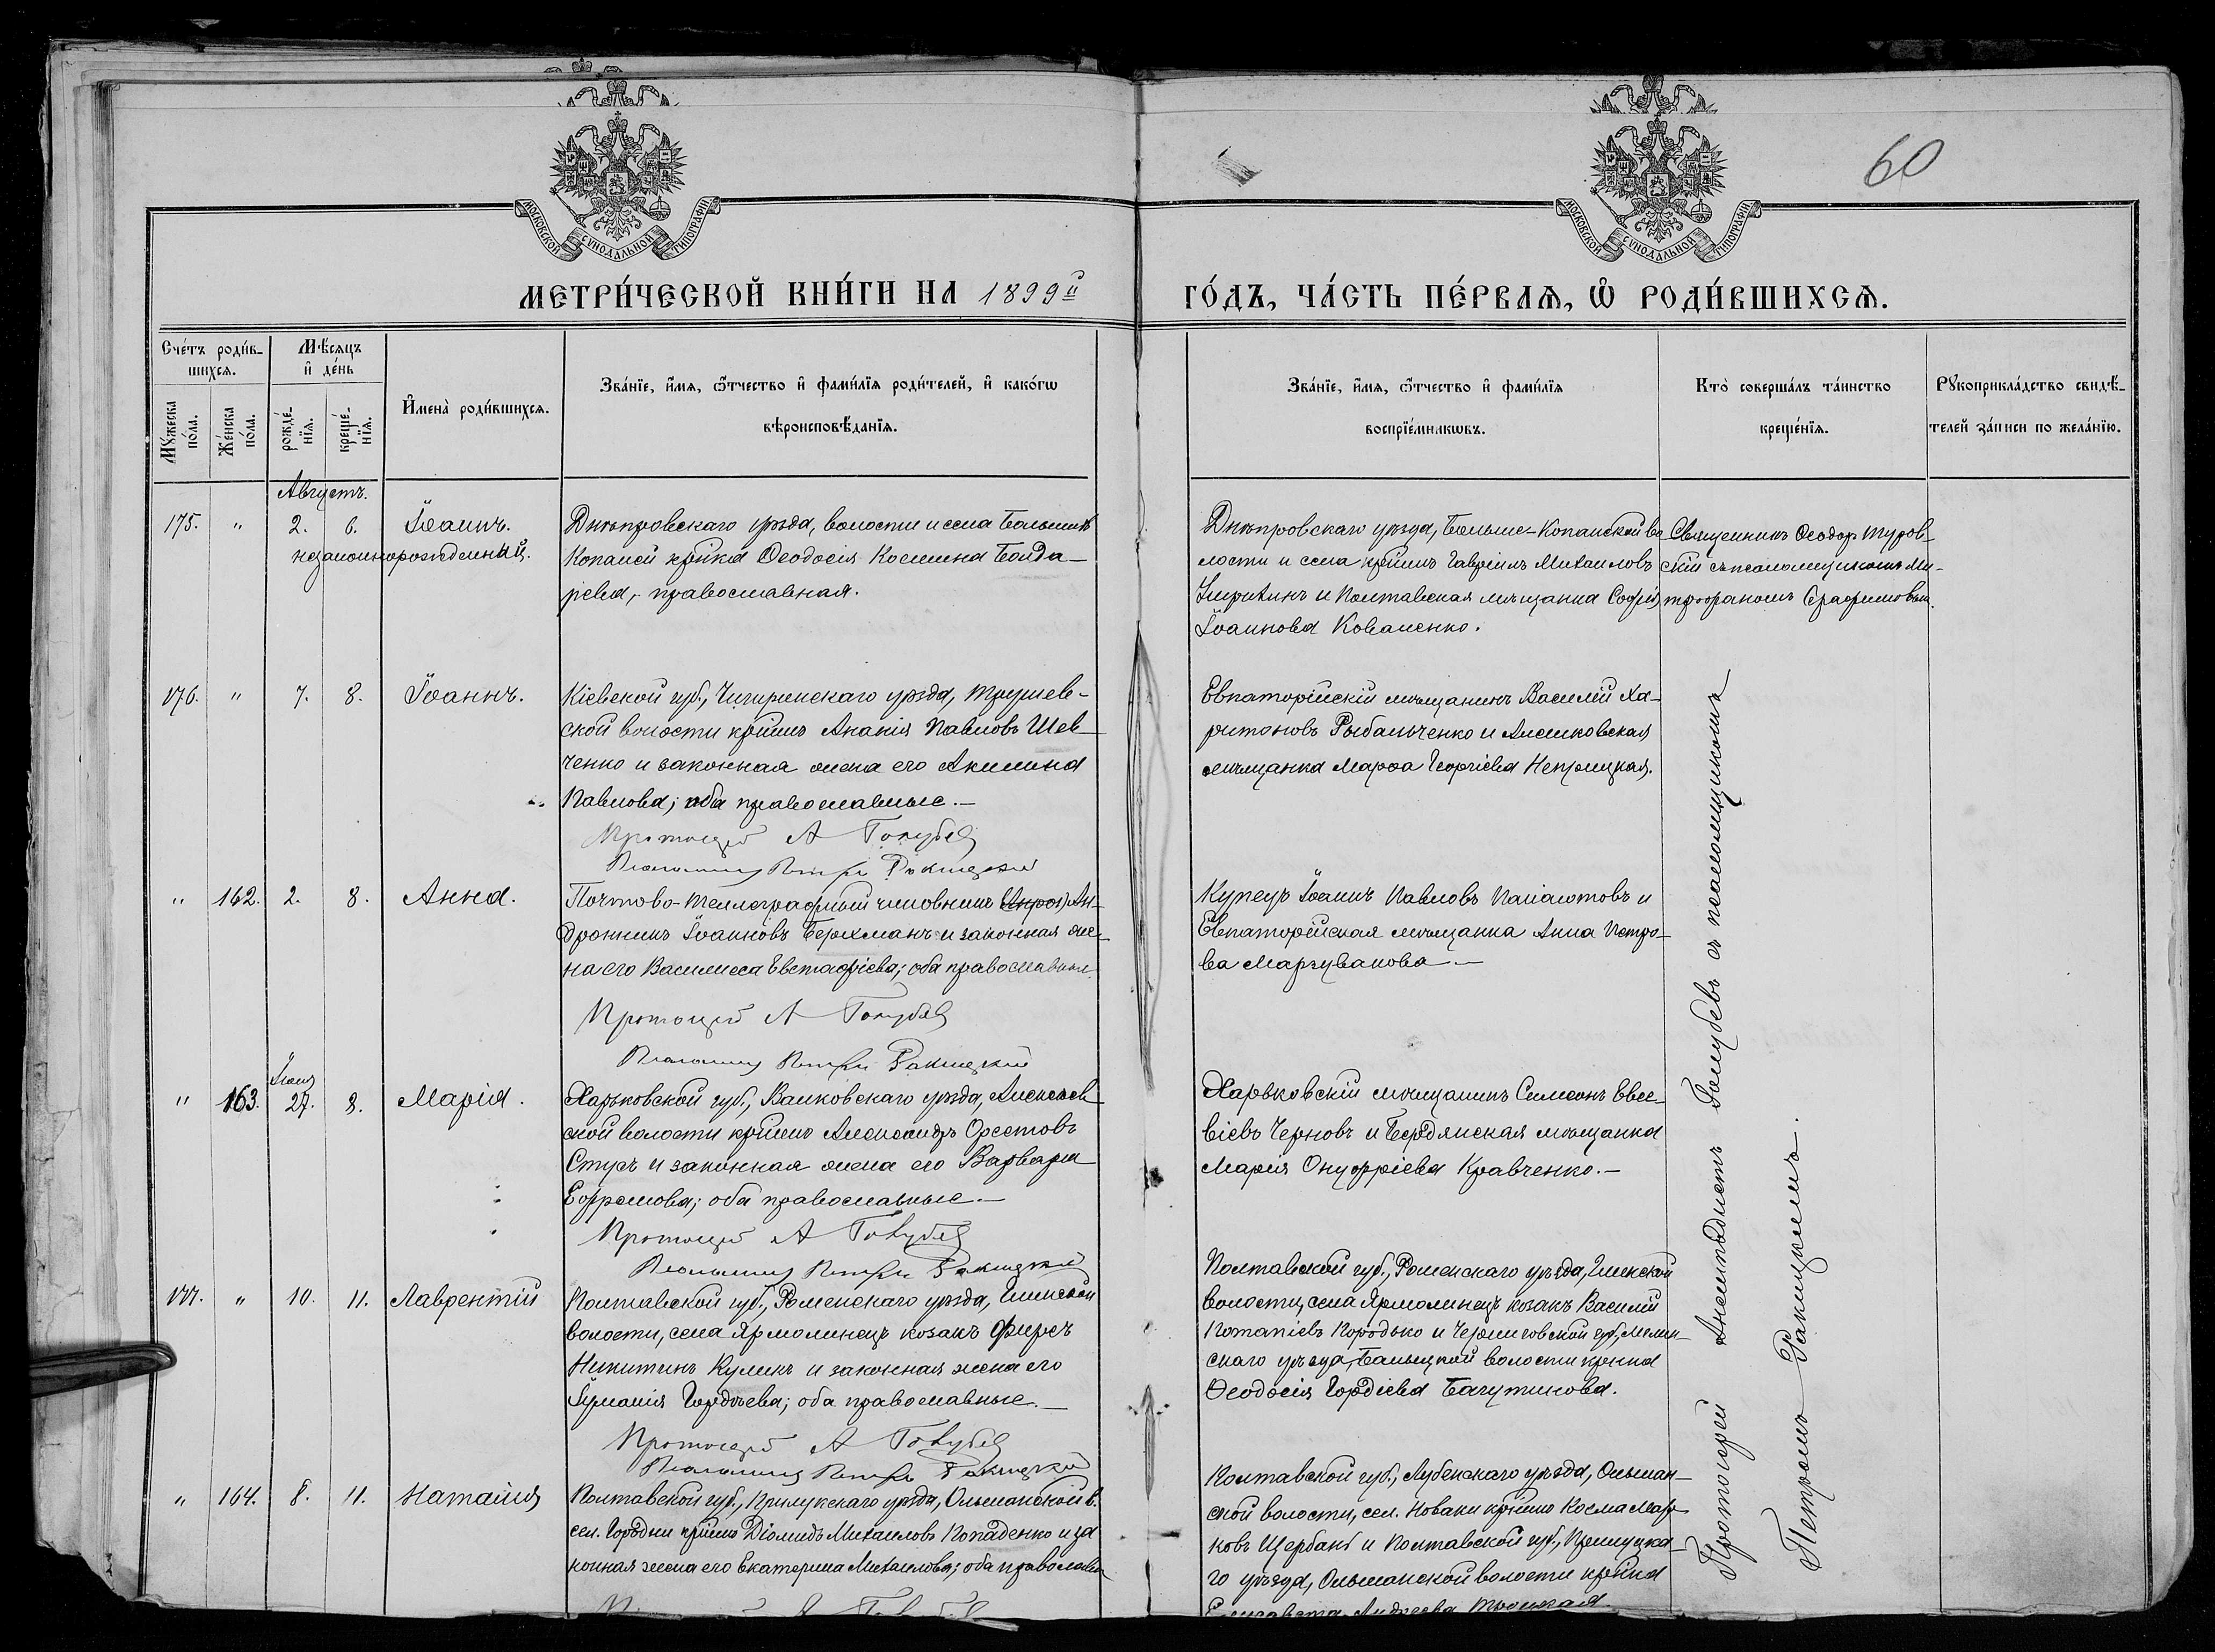 60
МОСКОВСКОЙ СѴНОДАЛЬНОЙ ТИПОГРАФІИ
МОСКОВСКОЙ СѴНОДАЛЬНОЙ ТИПОГРАФІИ
МЕТРИ́ЧЕСКОЙ КНИ́ГИ НА 1899й
ГО́ДЪ, ЧА́СТЬ ПЕ́РВАѦ, Ѽ РОДИ́ВШИХСѦ.
Сче́тъ роди́в-
шихсѧ.
Мꙋ́жеска по́ла.
Же́нска по́ла.
Мѣ́сяцъ и҆ де́нь
рожде́-нїѧ.
креще́-нїѧ.
И҆мена̀ роди́вшихсѧ.
Зва́нїе, и҆́мѧ, ѻ҆́тчество и҆ фами́лїѧ роди́телей, и҆ како́гѡ
вѣроисповѣ́данїѧ.
Зва́нїе, и҆́мѧ, ѻ҆́тчество и҆ фами́лїѧ
воспрїе́мникѡвъ.
Кто̀ соверша́лъ та́инство
креще́нїѧ.
Рꙋкоприкла́дство свидѣ́-
телей за́писи по жела́нїю.
Августъ.
175. " 2. 6. Іоаннъ.
незаконнорожденный.
Днѣпровскаго уѣзда, волости и села Большихъ
Копаней кр-нка Ѳеодосія Космина Бонда-
рева, православная.
Днѣпровскаго уѣзда, Больше-Копанской во-
лости и села кр-нинъ Гавріилъ Михаиловъ
и Полтавская мѣщанка Софія
Іоаннова Коваленко.
Священникъ Ѳеодоръ Туров-
скій съ псаломщикомъ Ми-
трофаномъ Серафимовым.
176. " 7. 8. Іоаннъ.
Кіевской губ., Чигиринскаго уѣзда, Трушев-
ской волости кр-нинъ Ананія Павловъ Шев-
ченко и законная жена его Акилина
Павлова; оба православные.—
Протоіерей А Голубев
Псаломщик Петръ Ракицкий
Евпаторійскій мѣщанинъ Василій Ха-
ритоновъ Рыбальченко и Алешковская
мѣщанка Марѳа Георгіева Неприцкая.
" 162. 2. 8. Анна.
Почтово-телеграфный чиновникъ Ан-
дроникъ Іоанновъ Берхманъ и законная же-
на его Василиса Евстафіева; оба православные.
Протоіерей А Голубев
Псаломщик Петръ Ракицкий
Купецъ Іоаннъ Павловъ Панаіотовъ и
Евпаторійская мѣщанка Анна Петро-
ва Маргувакова.—
Іюля
" 163. 27. 8. Марія.
Харьковской губ., Валковскаго уѣзда, Алексѣев-
ской волости кр-нинъ Александръ Орестовъ
Стусъ и законная жена его Варвара
Ефремова; оба православные.—
Протоіерей А Голубев
Псаломщик Петръ Ракицкий
Харьковскій мѣщанинъ Симеонъ Евсе-
віевъ Черновъ и Бердянская мѣщанка
Мария Онуфріева Кравченко.—
177. " 10. 11. Лаврентій
Полтавской губ., Роменскаго уѣзда, Глинской
волости, села Ярмолинецъ козакъ Фирсъ
Никитинъ Куликъ и законная жена его
Іуліанія Гордѣева; оба православные.—
Протоіерей А Голубев
Псаломщик Петръ Ракицкий
Полтавской губ., Роменскаго уѣзда, Глинской
волости, села Ярмолинецъ козакъ Василій
Потапіевъ Породько и Черниговской губ., Мглин-
скаго уѣзда, волости кр-нка
Ѳеодосія Гордіева Багутинова.
" 164. 8. 11. Наталія
Полтавской губ., Прилукскаго уѣзда, Ольшанской в.
сел. Городни кр-нинъ Діомидъ Михаиловъ Копаденко и за
конная жена его Екатерина Михаилова; оба православн
Полтавской губ., Лубенскаго уѣзда, Ольшан-
ской волости, сел. Новаки кр-нинъ Косма Мар-
ковъ Щербакъ и Полтавской губ., Прилуцка-
го уѣзда, Ольшанской волости кр-нка
Елисавета Андреева Троицкая.
Протоіерей Анемподистъ Голубевъ съ псаломщикомъ
Петромъ Ракицкимъ.